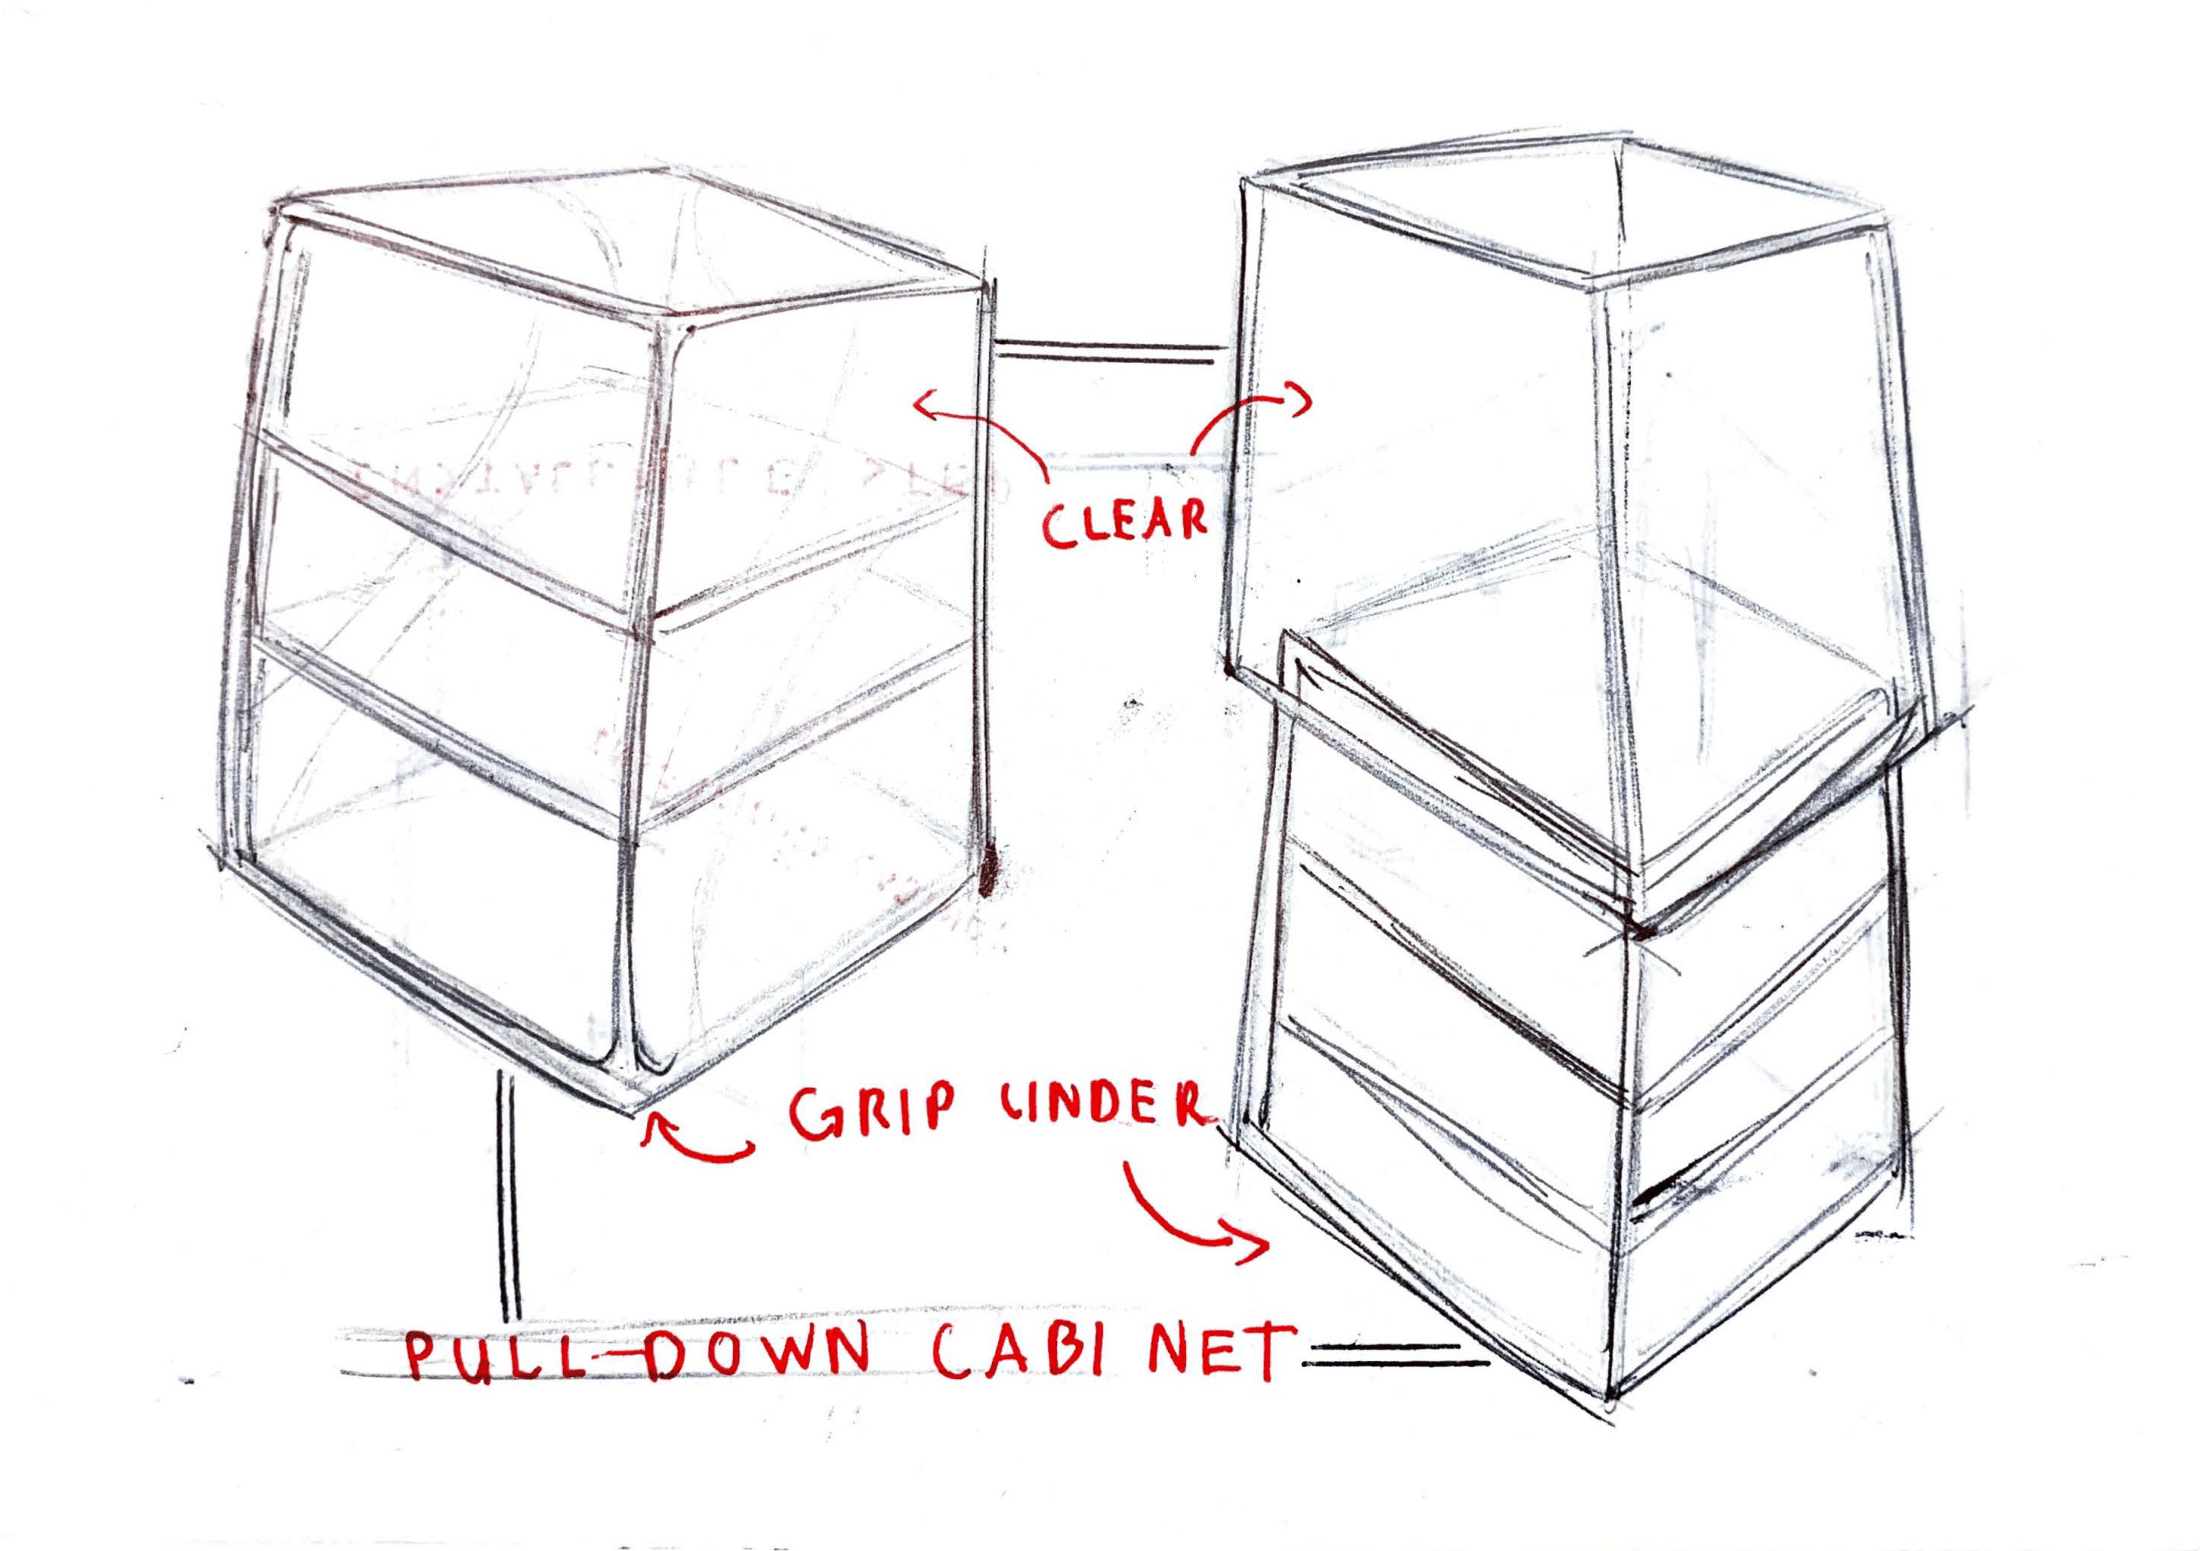 CLEAR
GRIP UNDER
PULL-DOWN CABINET